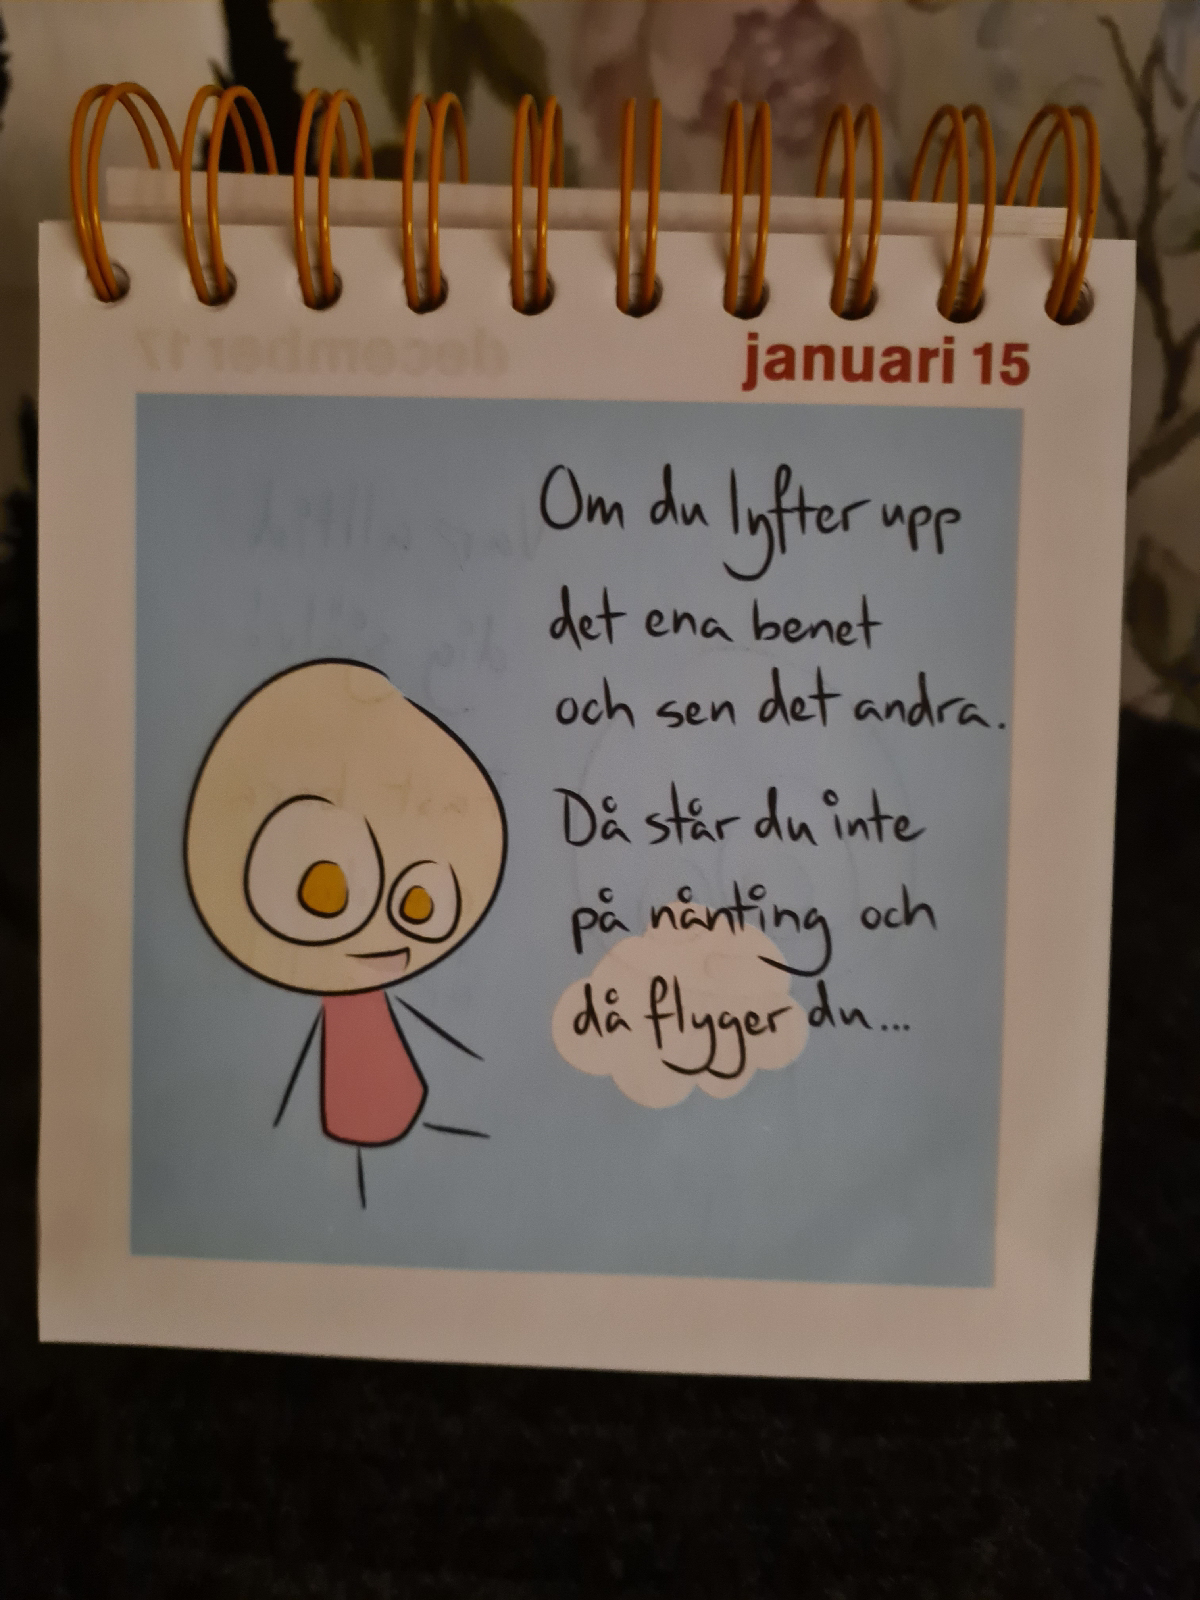 januari 15
Om du lyfter upp
det ena benet
och sen det andra.
Då står du inte
på nånting och
då flyger du...
december 17